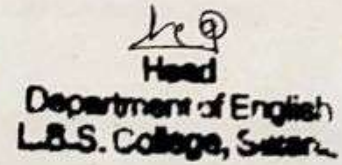 Head
Department of English
L.B.S. College, Satara